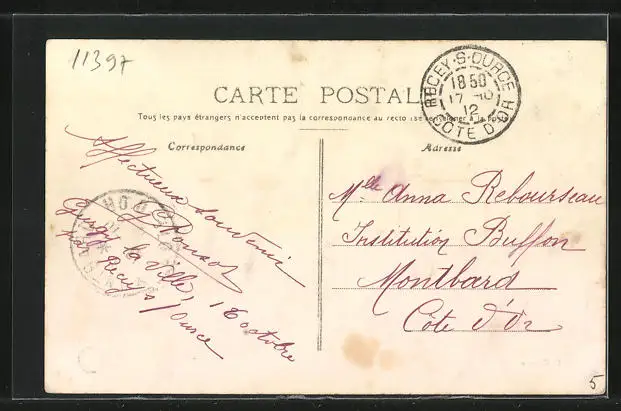 11397
CARTE POSTALE
RECEY-S-OURCE
18 50
17 -10
12
COTE D'OR
Tous les pays étrangers n'acceptent pas la correspondance au recto (se renseigner à la Poste)
Correspondance
Adresse
Affectueux Souvenir
Gurgy la Ville, 16 octobre
par Recey s/ Ource
Mlle Anna Rebourseau
Institution Buffon
Montbard
Côte d'Or
5